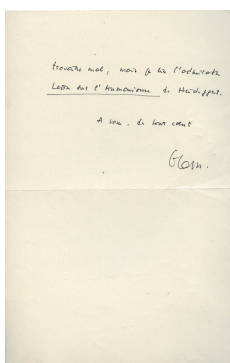 travaille mal, mais je lis l'admirable
Lettre sur l'Humanisme de Heidegger.
A vous. de tout cœur